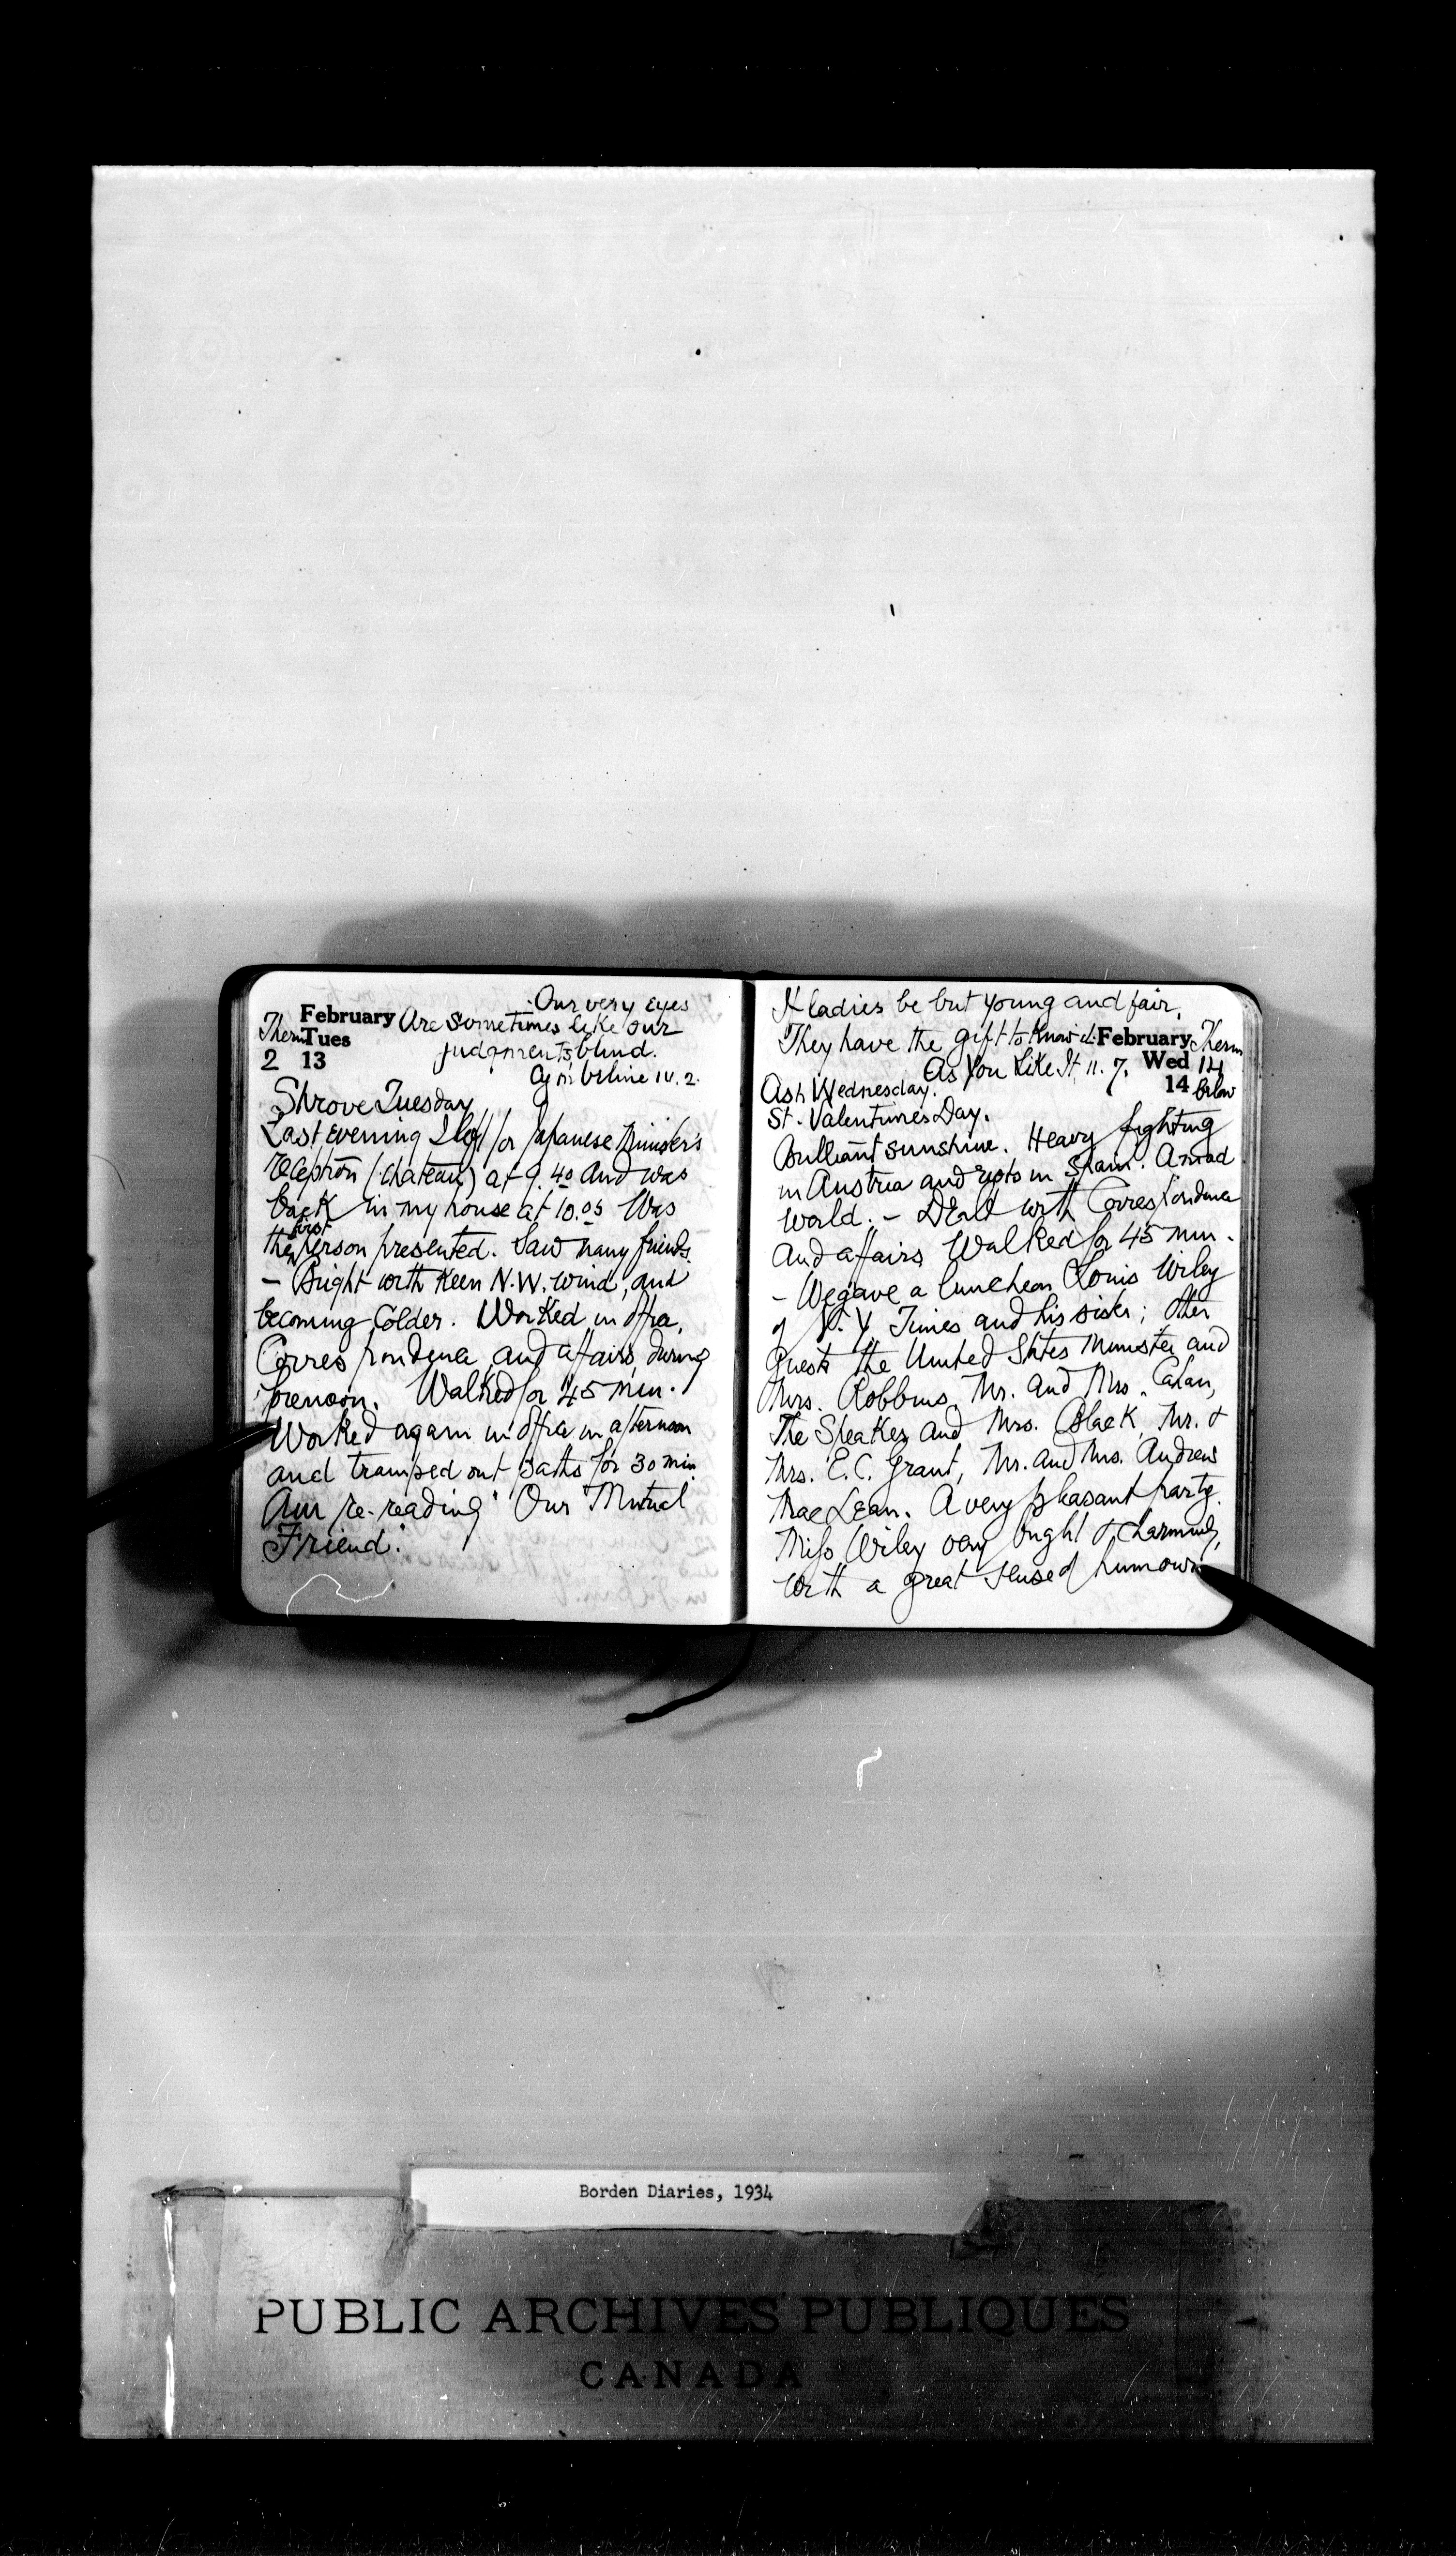 Our very eyes
February Are sometimes like our
Therm Tues
judgments blind.
2 13
Cymbeline IV. 2.
Shrove Tuesday
Last evening I left for Japanese Minister's
reception (Chateau) at 9.40 and was
back in my house at 10.05 Was
first
the person presented. Saw many friends.
- Bright with keen N.W. wind, and
becoming colder. Worked in office,
Correspondence and affairs during
forenoon. Walked for 45 min.
Worked again in office in afternoon
and tramped out paths for 30 min
Am re-reading "Our Mutual
Friend".
If ladies be but young and fair,
They have the gift to know it. February Therm
As You Like It, 11. 7. Wed 14
14 below
Ash Wednesday.
St. Valentines Day.
Brilliant sunshine. Heavy fighting
in Austria and riots in Spain. A mad
world. - Dealt with Correspondence
and affairs Walked for 45 min.
- We gave a luncheon Louis Wiley
of N.Y. Times and his sister; other
guests the United States Minister and
Mrs. Robbins, Mr. and Mrs. Cahan,
The Speaker and Mrs. Black, Mr. &
Mrs. E.C. Grant, Mr. and Mrs. Andrew
MacLean. A very pleasant party.
Miss Wiley very bright & charming,
with a great sense of humour
Borden Diaries, 1934
PUBLIC ARCHIVES PUBLIQUES
CANADA